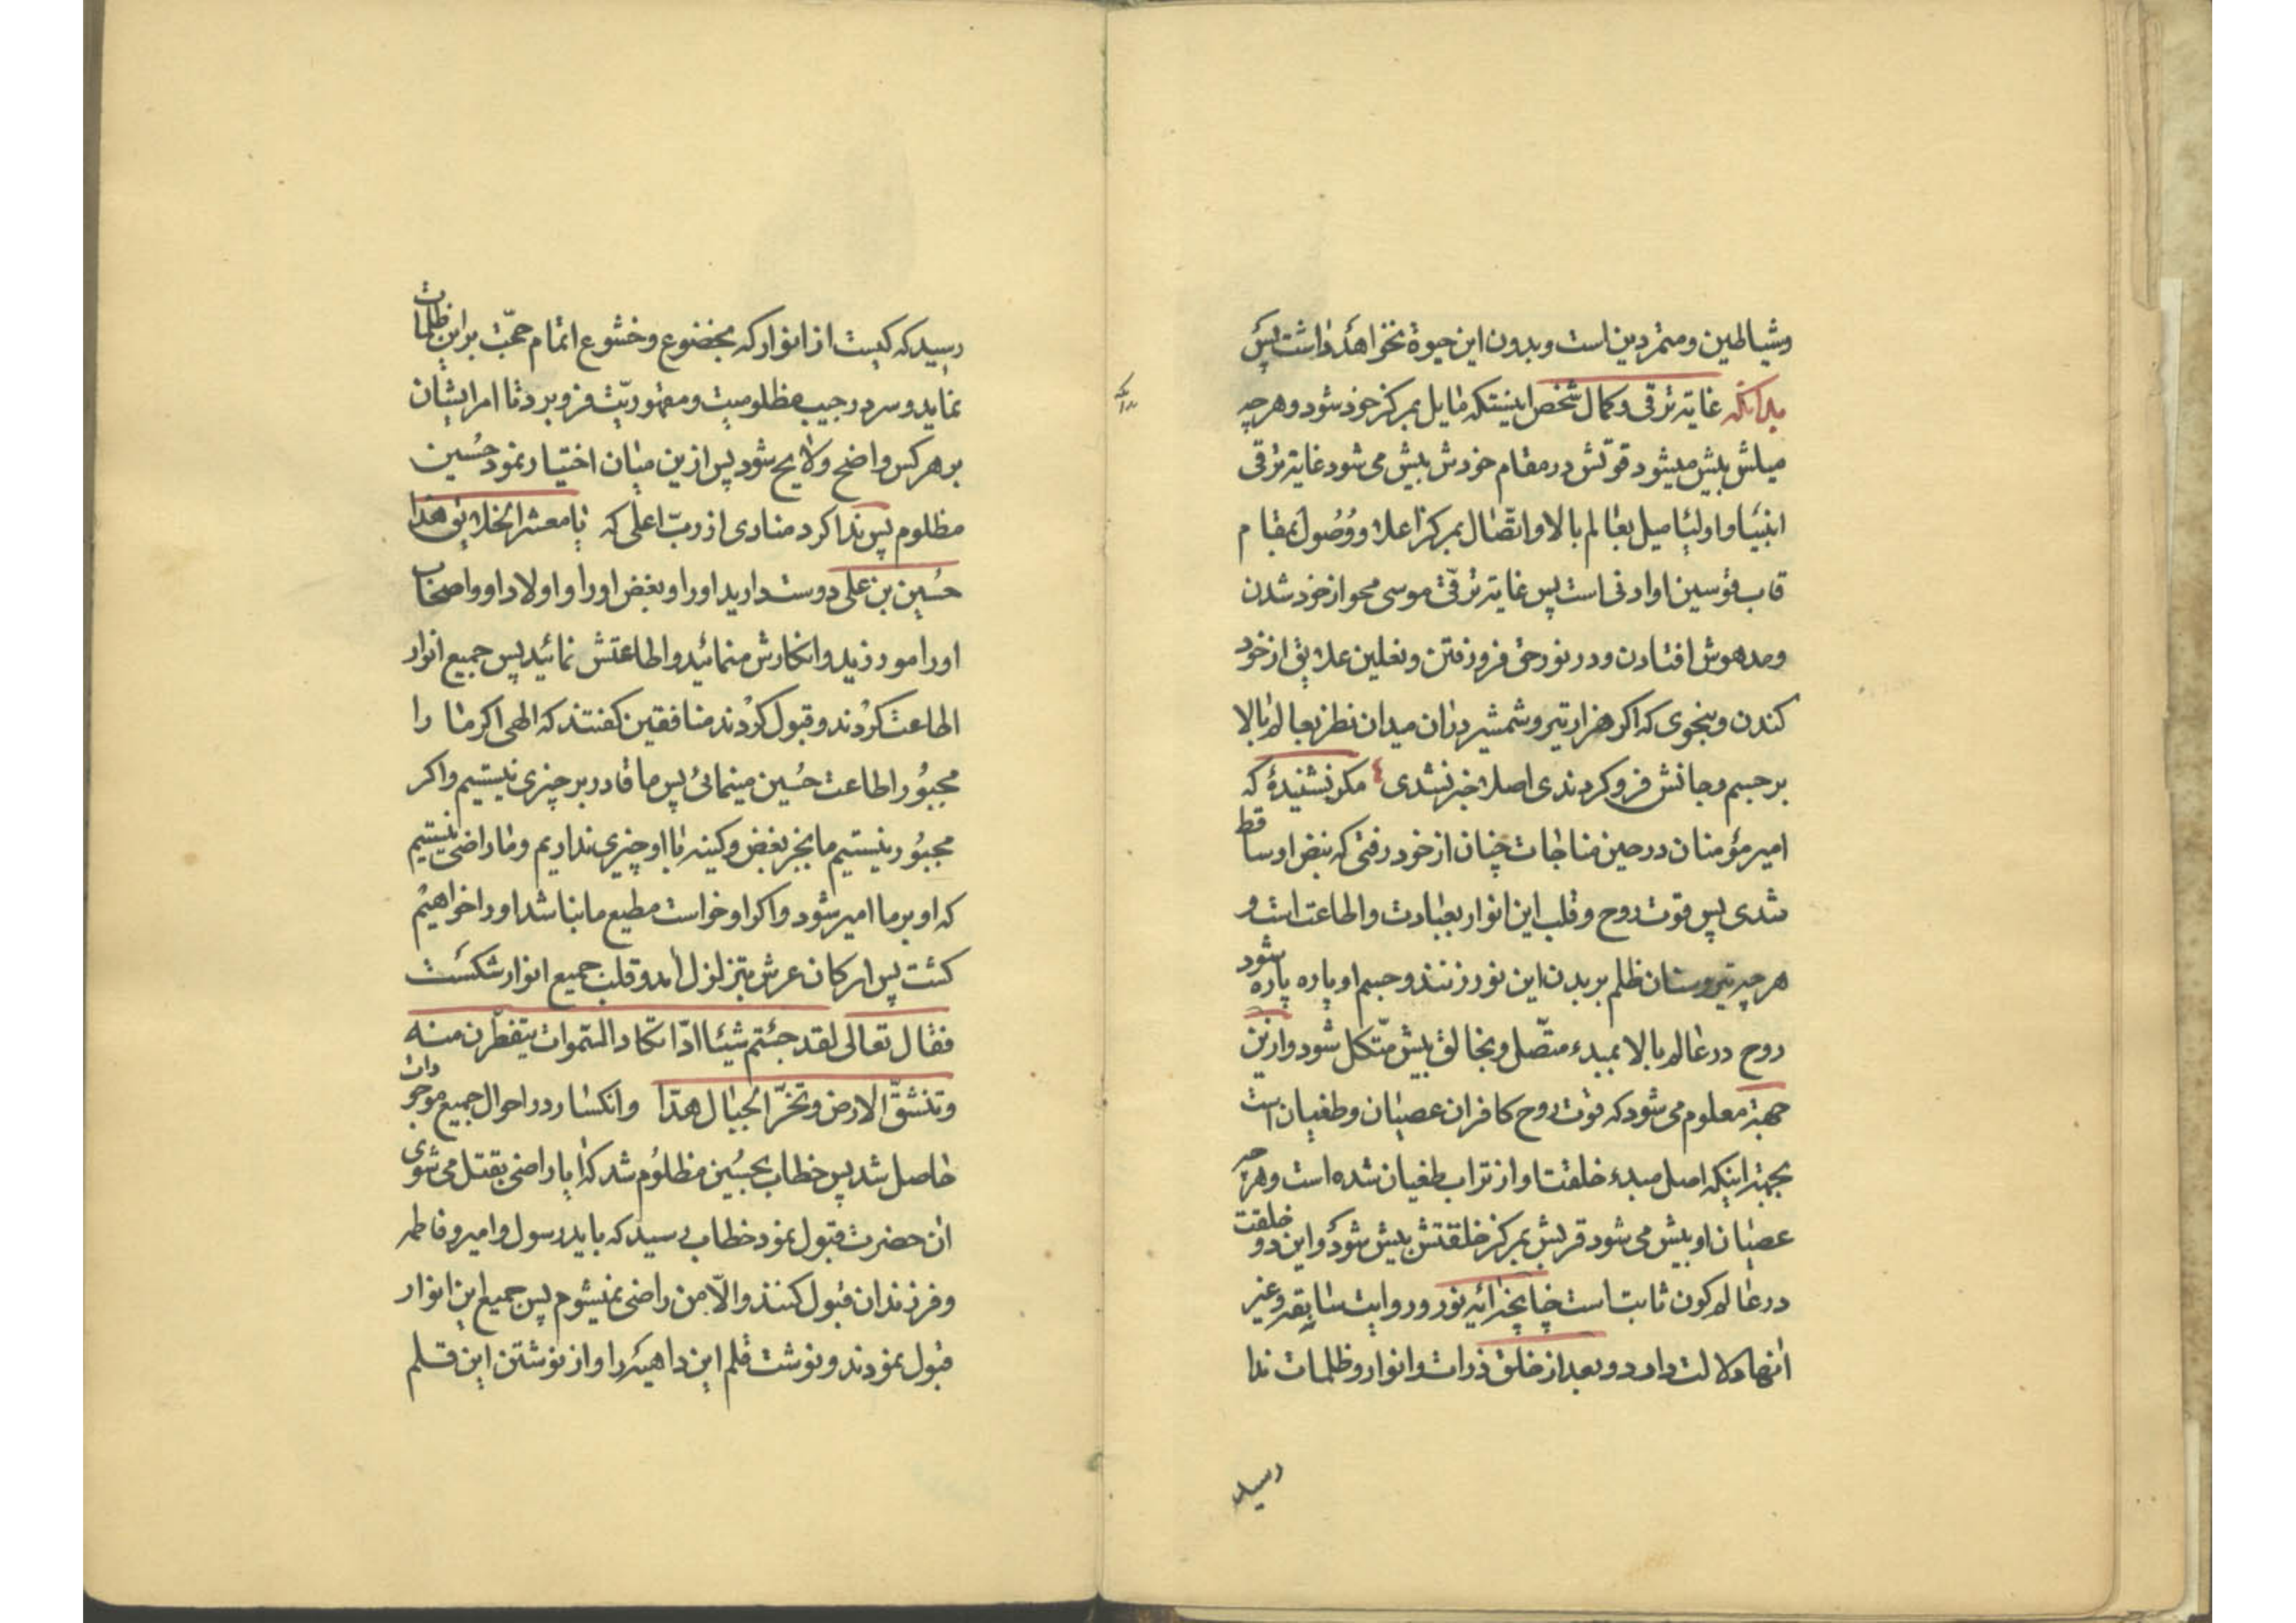 وشیاطین ومتمردین است وبدون این حیوة نخواهد داشت پس
بدانکه غایة ترقی وکمال شخص اینستکه مایل بمرکز خود شود وهرچه
میلش بیش میشود قوتش در مقام خودش بیش می شود غایة ترقی
انبیا واولیا میل بعالم بالا واتصال بمرکز اعلا ووصول بمقام
قاب قوسین او ادنی است پس غایة ترقی موسی محو از خود شدن
ومدهوش افتادن ودر نور حق فرو رفتن ونعلین علایق از خود
کندن وبنحوی که اکر هزار تیر وشمشیر در ان میدان نظر بعالم بالا
بر جسم وجانش فرو کردندی اصلا خبر نشدی مکر نشنیدهٔ که
امیر مؤمنان در حین مناجات چنان از خود رفتی که نبض او ساقط
شدی پس قوت روح وقلب این انوار بعبادت واطاعت است و
هر چه تیر وسنان ظلم بر بدن این نور زنند وجسم او پاره پاره شود
روح در عالم بالا بمبدء متصل وبخالق بیش متکل شود وازین
جهة معلوم می شود که قوت روح کافران عصیان وطغیان است
بجهة اینکه اصل مبدء خلقت او از تراب طغیان شده است وهر چه
عصیان او بیش می شود قربش بمرکز خلقتش بیش شود واین دو خلقت
در عالم کون ثابت است چنانچه ایه نور وروایت سابقه وغیر
انها دلالت دارد وبعد از خلق ذرات وانوار وظلمات ندا
رسید
رسید که کیست از انوار که بخضوع وخشوع اتمام حجّت بر این ظلمات
نماید وسر در جیب مظلومیت ومقهوریّت فرو برد تا امر ایشان
بر هر کس واضح ولایح شود پس ازین میان اختیار نمود حُسین
مظلوم پس ندا کرد منادی از ربّ اعلی که یا معشر الخلایق هذا
حُسین بن علی دوست دارید او را وبغض او را واولاد او واصحاب
او را مورزید وانکارش منمائید واطاعتش نمائید پس جمیع انوار
اطاعت کردند وقبول کردند منافقین کفتند که الهی اکر ما را
مجبُور اطاعت حُسین مینمائی پس ما قادر بر چیزی نیستیم واکر
مجبُور نیستیم ما بجز بغض وکینه با او چیزی نداریم وما راضی نیستیم
که او بر ما امیر شود واکر او خواست مطیع ما بنا شد او را خواهیم
کشت پس ارکان عرش بتزلزل امد وقلب جمیع انوار شکست
فقال تعالی لقد جئتم شیئا ادّا تکاد السّموات یتفطّرن منه
وتنشقّ الارض وتخرّ الجبال هدّا وانکسار در احوال جمیع موجودات
حاصل شد پس خطاب بحسُین مظلوُم شد که ایا راضی بقتل می شوی
ان حضرت قبول نمود خطاب رسید که باید رسول وامیر وفاطمه
وفرزندان قبول کنند والّا من راضی نمیشوم پس جمیع این انوار
قبول نمودند ونوشت قلم این داهیه را واز نوشتن این قلم